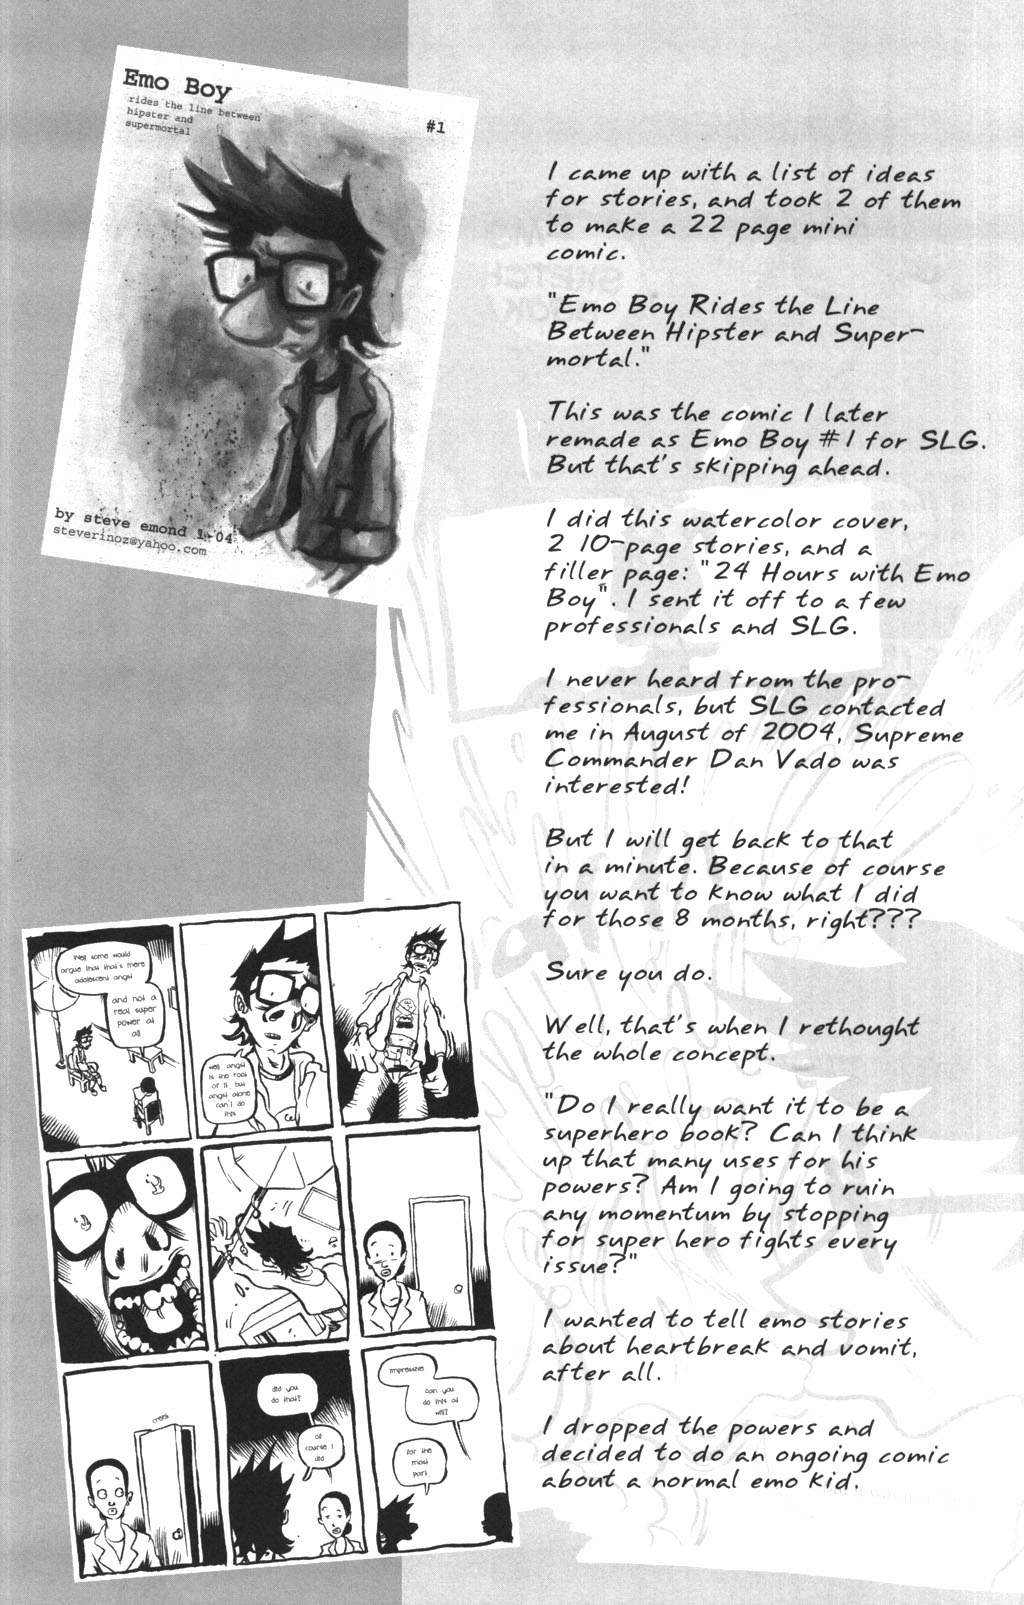 Emo Boy
rides the line between
hipster and
supermortal
#1
by steve emond 1-04
steverinoz@yahoo.com
I came up with a list of ideas
for stories, and took 2 of them
to make a 22 page mini
comic.
"Emo Boy Rides the Line
Between Hipster and Super-
mortal."
This was the comic I later
remade as Emo Boy #1 for SLG.
But that's skipping ahead.
I did this watercolor cover,
2 10-page stories, and a
filler page: "24 Hours with Emo
Boy". I sent it off to a few
professionals and SLG.
I never heard from the pro-
fessionals, but SLG contacted
me in August of 2004, Supreme
Commander Dan Vado was
interested!
But I will get back to that
in a minute. Because of course
you want to know what I did
for those 8 months, right???
Sure you do.
Well, that's when I rethought
the whole concept.
"Do I really want it to be a
superhero book? Can I think
up that many uses for his
powers? Am I going to ruin
any momentum by stopping
for super hero fights every
issue?"
I wanted to tell emo stories
about heartbreak and vomit,
after all.
I dropped the powers and
decided to do an ongoing comic
about a normal emo kid.
Well some would
argue that that's mere
adolescent angst
and not a
real super
power at
all
well, angst
is the root
of it, but
angst alone
can't do
this
creek
did you
do that?
of
course I
did
impressive
can you
do this at
will?
for the
most
part